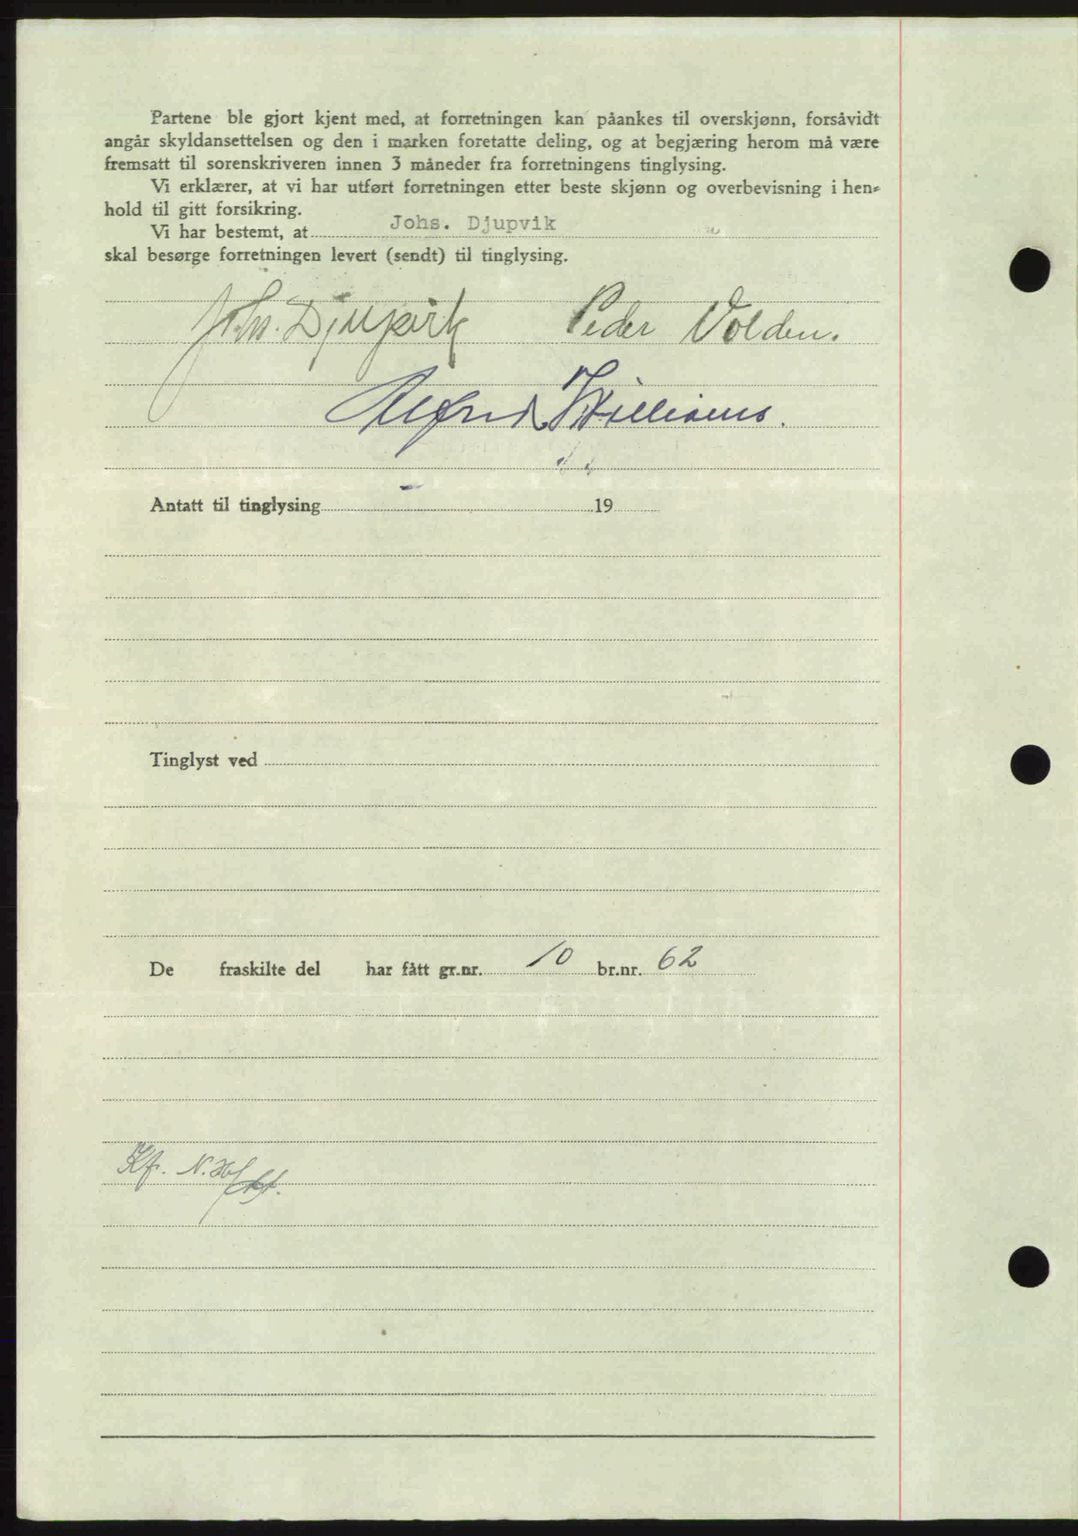 Partene ble gjort kjent med, at forretningen kan påankes til overskjønn, forsåvidt
angår skyldansettelsen og den i marken foretatte deling, og at begjæring herom må være
fremsatt til sorenskriveren innen 3 måneder fra forretningens tinglysing.
Vi erklærer, at vi har utført forretningen etter beste skjønn og overbevisning i hen-
hold til gitt forsikring.
Vi har bestemt, at Johs. Djupvik
skal besørge forretningen levert (sendt) til tinglysing.
Johs. Djupvik Peder Volden.
Alfred Williams.
Antatt til tinglysing 19
Tinglyst ved
De fraskilte del har fått gr.nr. 10 br.nr. 62
Kf. N.